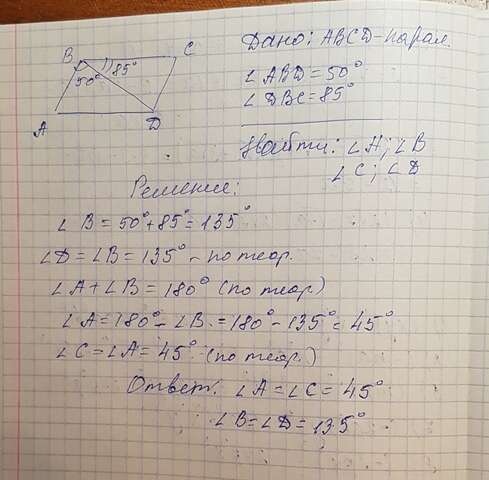 B C
50° 85°
A D
Дано: ABCD-парал.
∠ABD=50°
∠DBC=85°
Найти: ∠A; ∠B
∠C; ∠D
Решение:
∠B=50°+85°=135°
∠D=∠B=135°-по теор.
∠A+∠B=180° (по теор.)
∠A=180°-∠B.=180°-135°=45°
∠C=∠A=45° (по теор.)
Ответ. ∠A=∠C=45°
∠B=∠D=135°